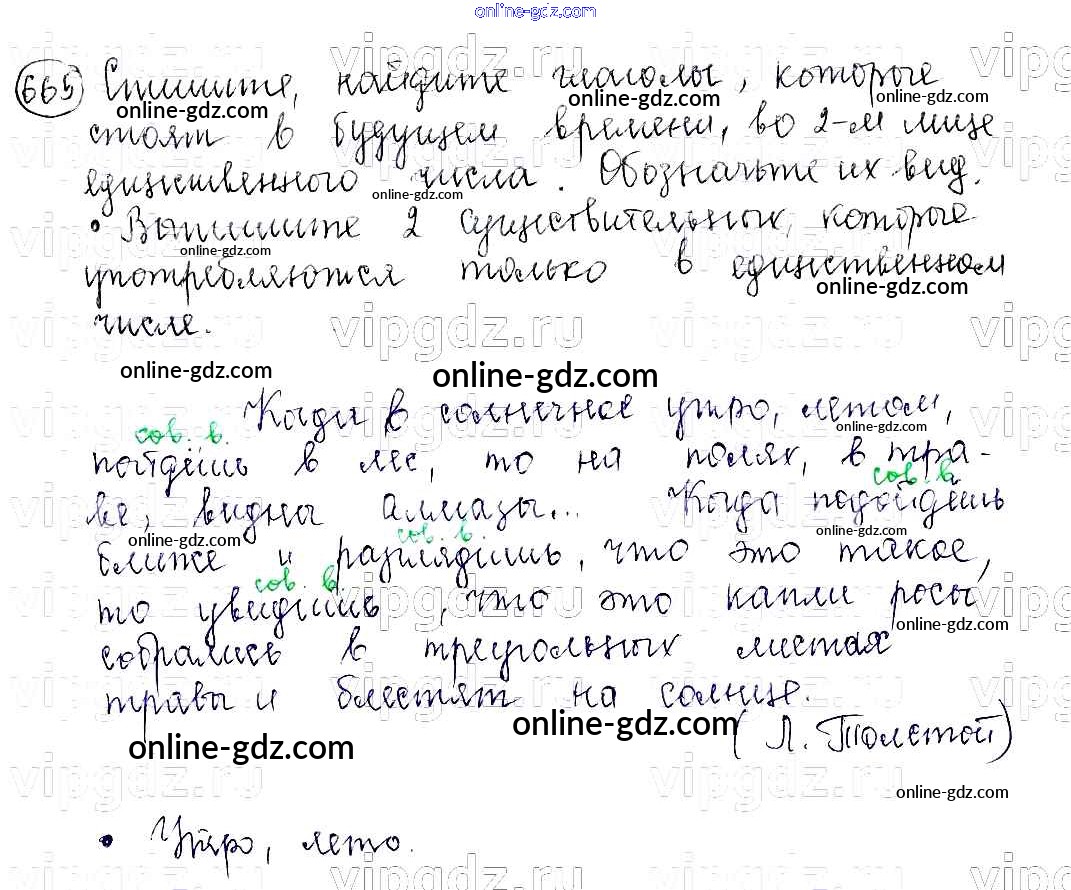 online-gdz.com
665 Спишите, найдите глаголы, которые
online-gdz.com online-gdz.com
стоят в будущем времени, во 2-м лице
online-gdz.com
единственного числа. Обозначьте их вид.
online-gdz.com
• Выпишите 2 существительных, которые
online-gdz.com
употребляются только в единственном
online-gdz.com
числе.
vipgdz.ru
online-gdz.com online-gdz.com
Когда в солнечное утро, летом,
сов. в.
пойдёшь в лес, то на полях, в тра-
сов. в
ве, видны алмазы... Когда подойдёшь
сов. в. online-gdz.com
ближе и разглядишь, что это такое,
сов. в.
то увидишь, что это капли росы
online-gdz.com
собрались в треугольных листах
травы и блестят на солнце.
online-gdz.com online-gdz.com
(Л. Толстой)
online-gdz.com
• Утро, лето.